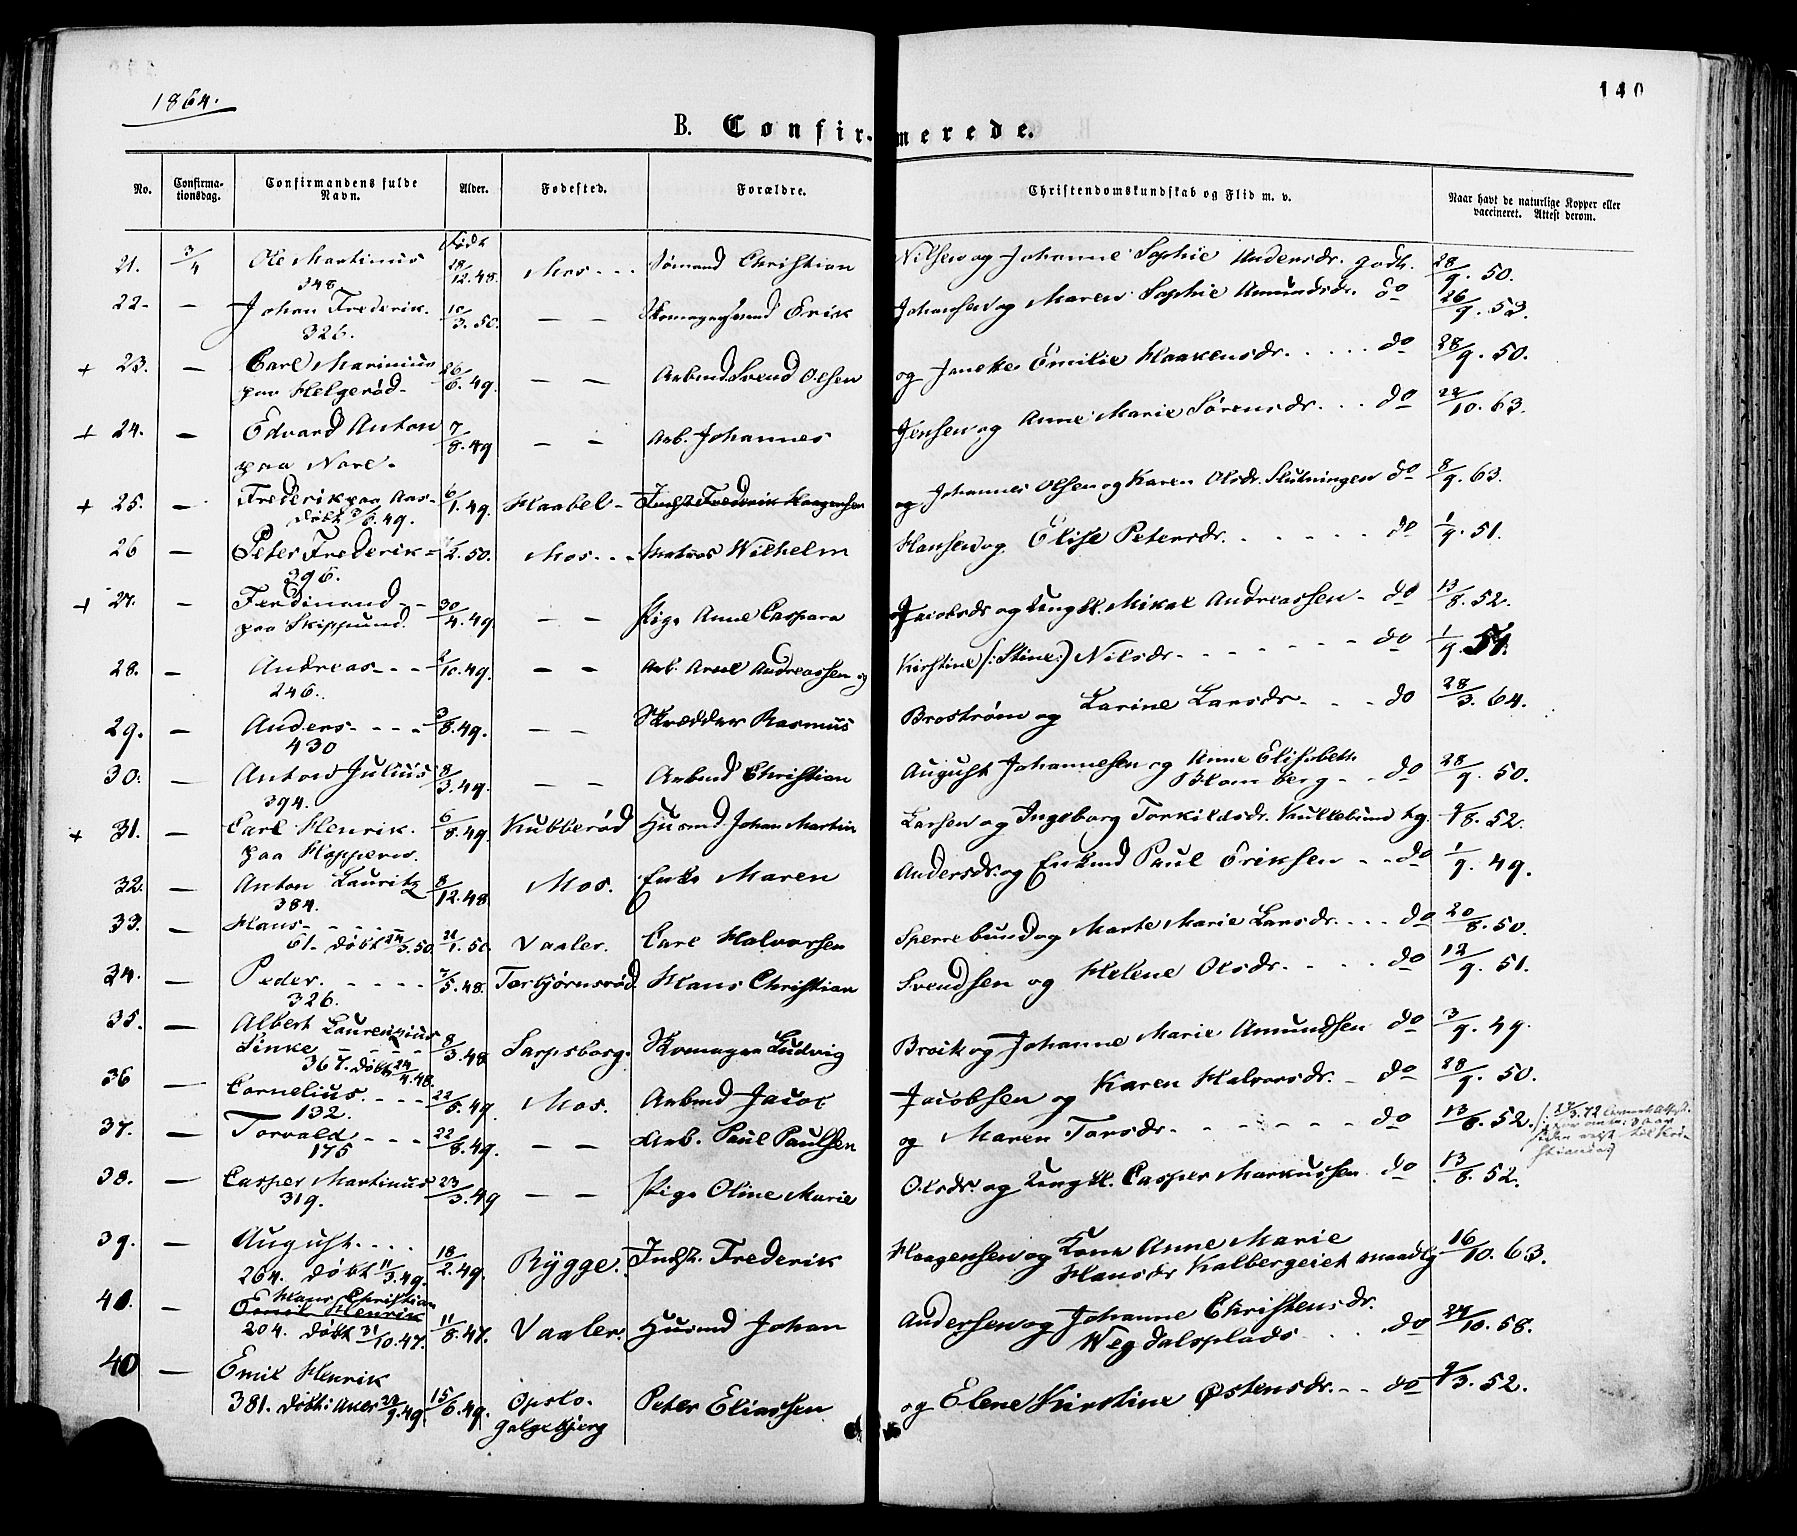 1864.
140
B. Confirmerede.
No. Confirmationsdag. Confirmandens fulde Navn. Alder. Fødested. Forældre. Christendomskundskab og Flid m. v. Naar havt de naturlige Kopper eller vaccineret. Attest derom.
21. 3/4 Ole Martinus Født 28/12.48. Mos - - - Sømand Christian Nilsen og Johanne Sophie Andersdr. godt. 28/9. 50.
348
22. — Johan Frederik. 10/3.50. — — Skomagersvend Erik Johansen og Maren Sophie Amundsdr. do 26/9. 53.
326.
+ 23. — Carl Marinius 26/6.49. — — Arbmd. Svend Olsen og Janeke Emilie Haakensdr. . . . . do 28/9. 50.
paa Helgerød
+ 24. — Edvard Anton 7/8.49 — — Arb. Johannes Jensen og Anne Marie Sørensdr. . . . do 22/10. 63.
paa Nore
+ 25. — Frederik paa Aas 6/1.49. Haabel - Indst. Frederik Haagensen og Johannes Olsen og Karen Olsdr. Slutningen do 8/9. 63.
døbt 3/6.49.
26 — Peter Frederik /2.50. Mos. . . Matros Wilhelm Hansen og Elise Petersdr. . . . . . do 1/9. 51.
396.
+ 27. — Ferdinand - - 30/4.49. — — Pige Anne Caspara Jacobsdr og Ungk. Mikal Andreassen - do 13/8. 52.
paa Skipsund.
28. — Andreas - - - 2/10.49. — — Arb. Arne Andreassen og Kirstine (: Stine:) Nilsdr. - - - - - - - do 1/9. 51.
246.
29. — Anders - - - - 3/8.49. — — Skrædder Rasmus Brostrøm og Larine Larsdr. - - - do 28/3. 64.
430
30. — Anton Julius 8/3.49. — — Arbmd Christian August Johannesen og Anne Elisabeth Blomberg - - do 28/9. 50.
394.
+ 31. — Carl Henrik. 6/8.49. Kubberød Husmd. Johan Martin Larsen og Ingeborg Torkildsdr. Kulkelund tg. /8. 52.
paa Hoppern.
32. — Anton Lauritz 8/12.48 Mos. Enke Maren Andersdr. og Enkmd Paul Eriksen - - do 1/9. 49.
384.
33. — Hans - - - - - 21/1.50. Vaaler. Carl Halvorsen Sperrebund og Marte Marie Larsdr. . . . do 20/8. 50.
61. døbt 24/3.50.
34. — Peder. - - - - 7/5.48. Torbjørnsrød. Hans Christian Svendsen og Helene Olsdr. - . . . do 12/9. 51.
326.
35. — Albert Laurentzius
Linke - - - - - 8/3.48 Sarpsborg. Skomager Ludvig Broik og Johanne Marie Amundsen do 3/9. 49.
367. døbt 24/4.48.
36 — Cornelius. - - - 22/5.49. Mos. Arbmd Jacob Jacobsen og Karen Halvorsdr. - do 28/9. 50.
132.
37. — Torvald - - - 22/8.49. — — Arb. Paul Paulsen og Maren Torsdr. - - - - - - do 13/8. 52.
175
38. — Casper Martinus 23/3.49 — — Pige Oline Marie Olsdr. og Ungk. Casper Markussen do 13/8. 52.
319.
39. — August. . . . 18/2.49. Rygge. Indst. Frederik Haagensen og Kone Anne Marie Hansdr Kalbergeiet maadlg 16/10. 63.
264. døbt 11/3.49.
41. — Hans Christian
Emil Henrik 11/8.47. Vaaler. Husmd Johan Andersen og Johanne Christensdr. Wegdalsplads . . . do 24/10. 58.
204. døbt 31/10.47.
40 — Emil Henrik
381. døbt: Aker 23/9.49 15/6.49. Opslo. Peter Eliassen og Elene Kirstine Østensdr. - - do /3. 52.
Galgebjerg